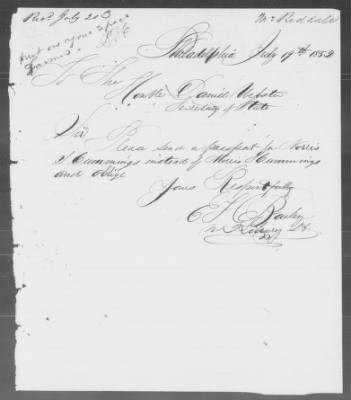 Recd July 20
Mr Reddall
Philadelphia July 19th 1852
To The
Honble Daniel Webster
Secretary of State
Sir Please send a passport for Norris
S Cummings instead of Morris Cummings
and oblige
Yours Respectfully